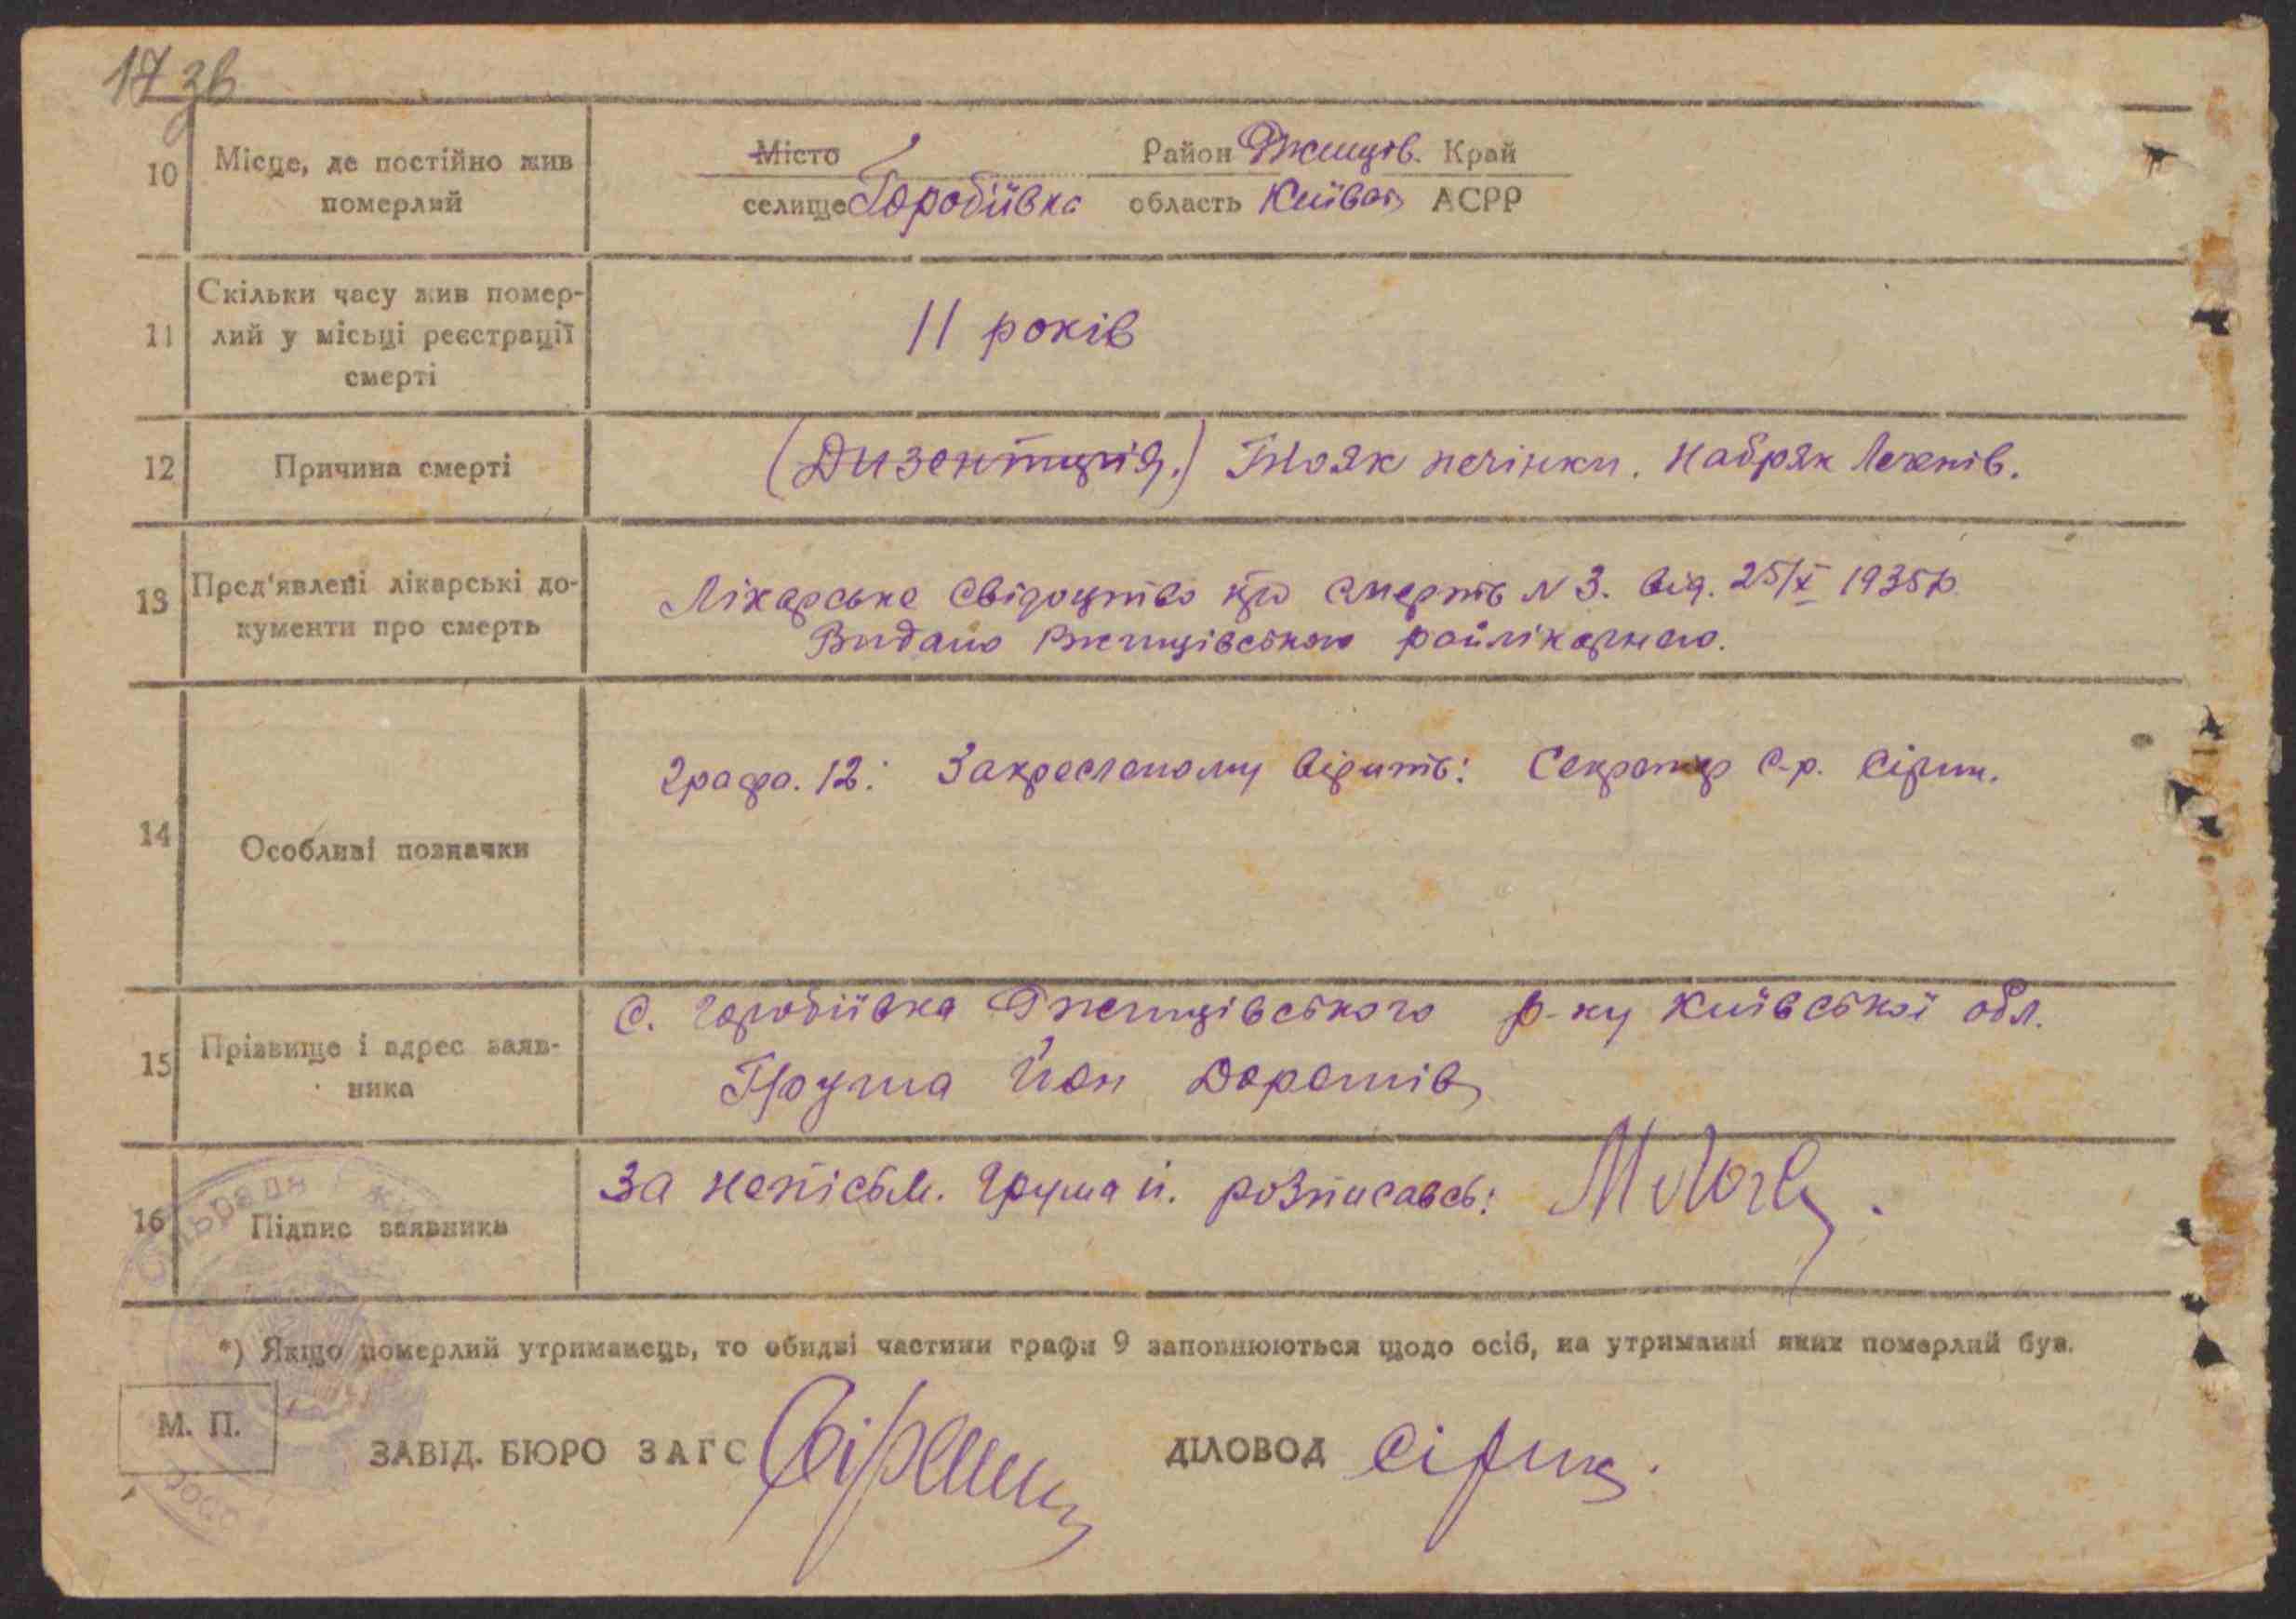 17 зв
10 Місце, де постійно жив померлий
Місто Район Ржищів. Край
селище Горобіївка область Київськ АСРР
11 Скільки часу жив помер-
лий у місьці реєстрації
смерті
11 років
12 Причина смерті
(Дизентирія.) Гнояк печінки. Набряк Легенів.
13 Пред'явлені лікарські до-
кументи про смерть
Лікарське свідоцтво про смерть N 3. від. 25/X 1935 р.
Видано Ржищівською райлікарнею.
14 Особливі позначки
графа. 12: Закресленому вірить: Секретар с.р. Сірик.
15 Прізвище і адрес заяв-
ника
С. Горобіївка Ржищівського р-ку Київської обл.
Груша Йон Доротів
16 Підпис заявника
За неписьм. Груша Й. розписавсь:
*) Якщо померлий утриманець, то обидві частини графи 9 заповнюються щодо осіб, на утриманні яких померлий був.
М. П.
ЗАВІД. БЮРО ЗАГС
ДІЛОВОД Сірик.